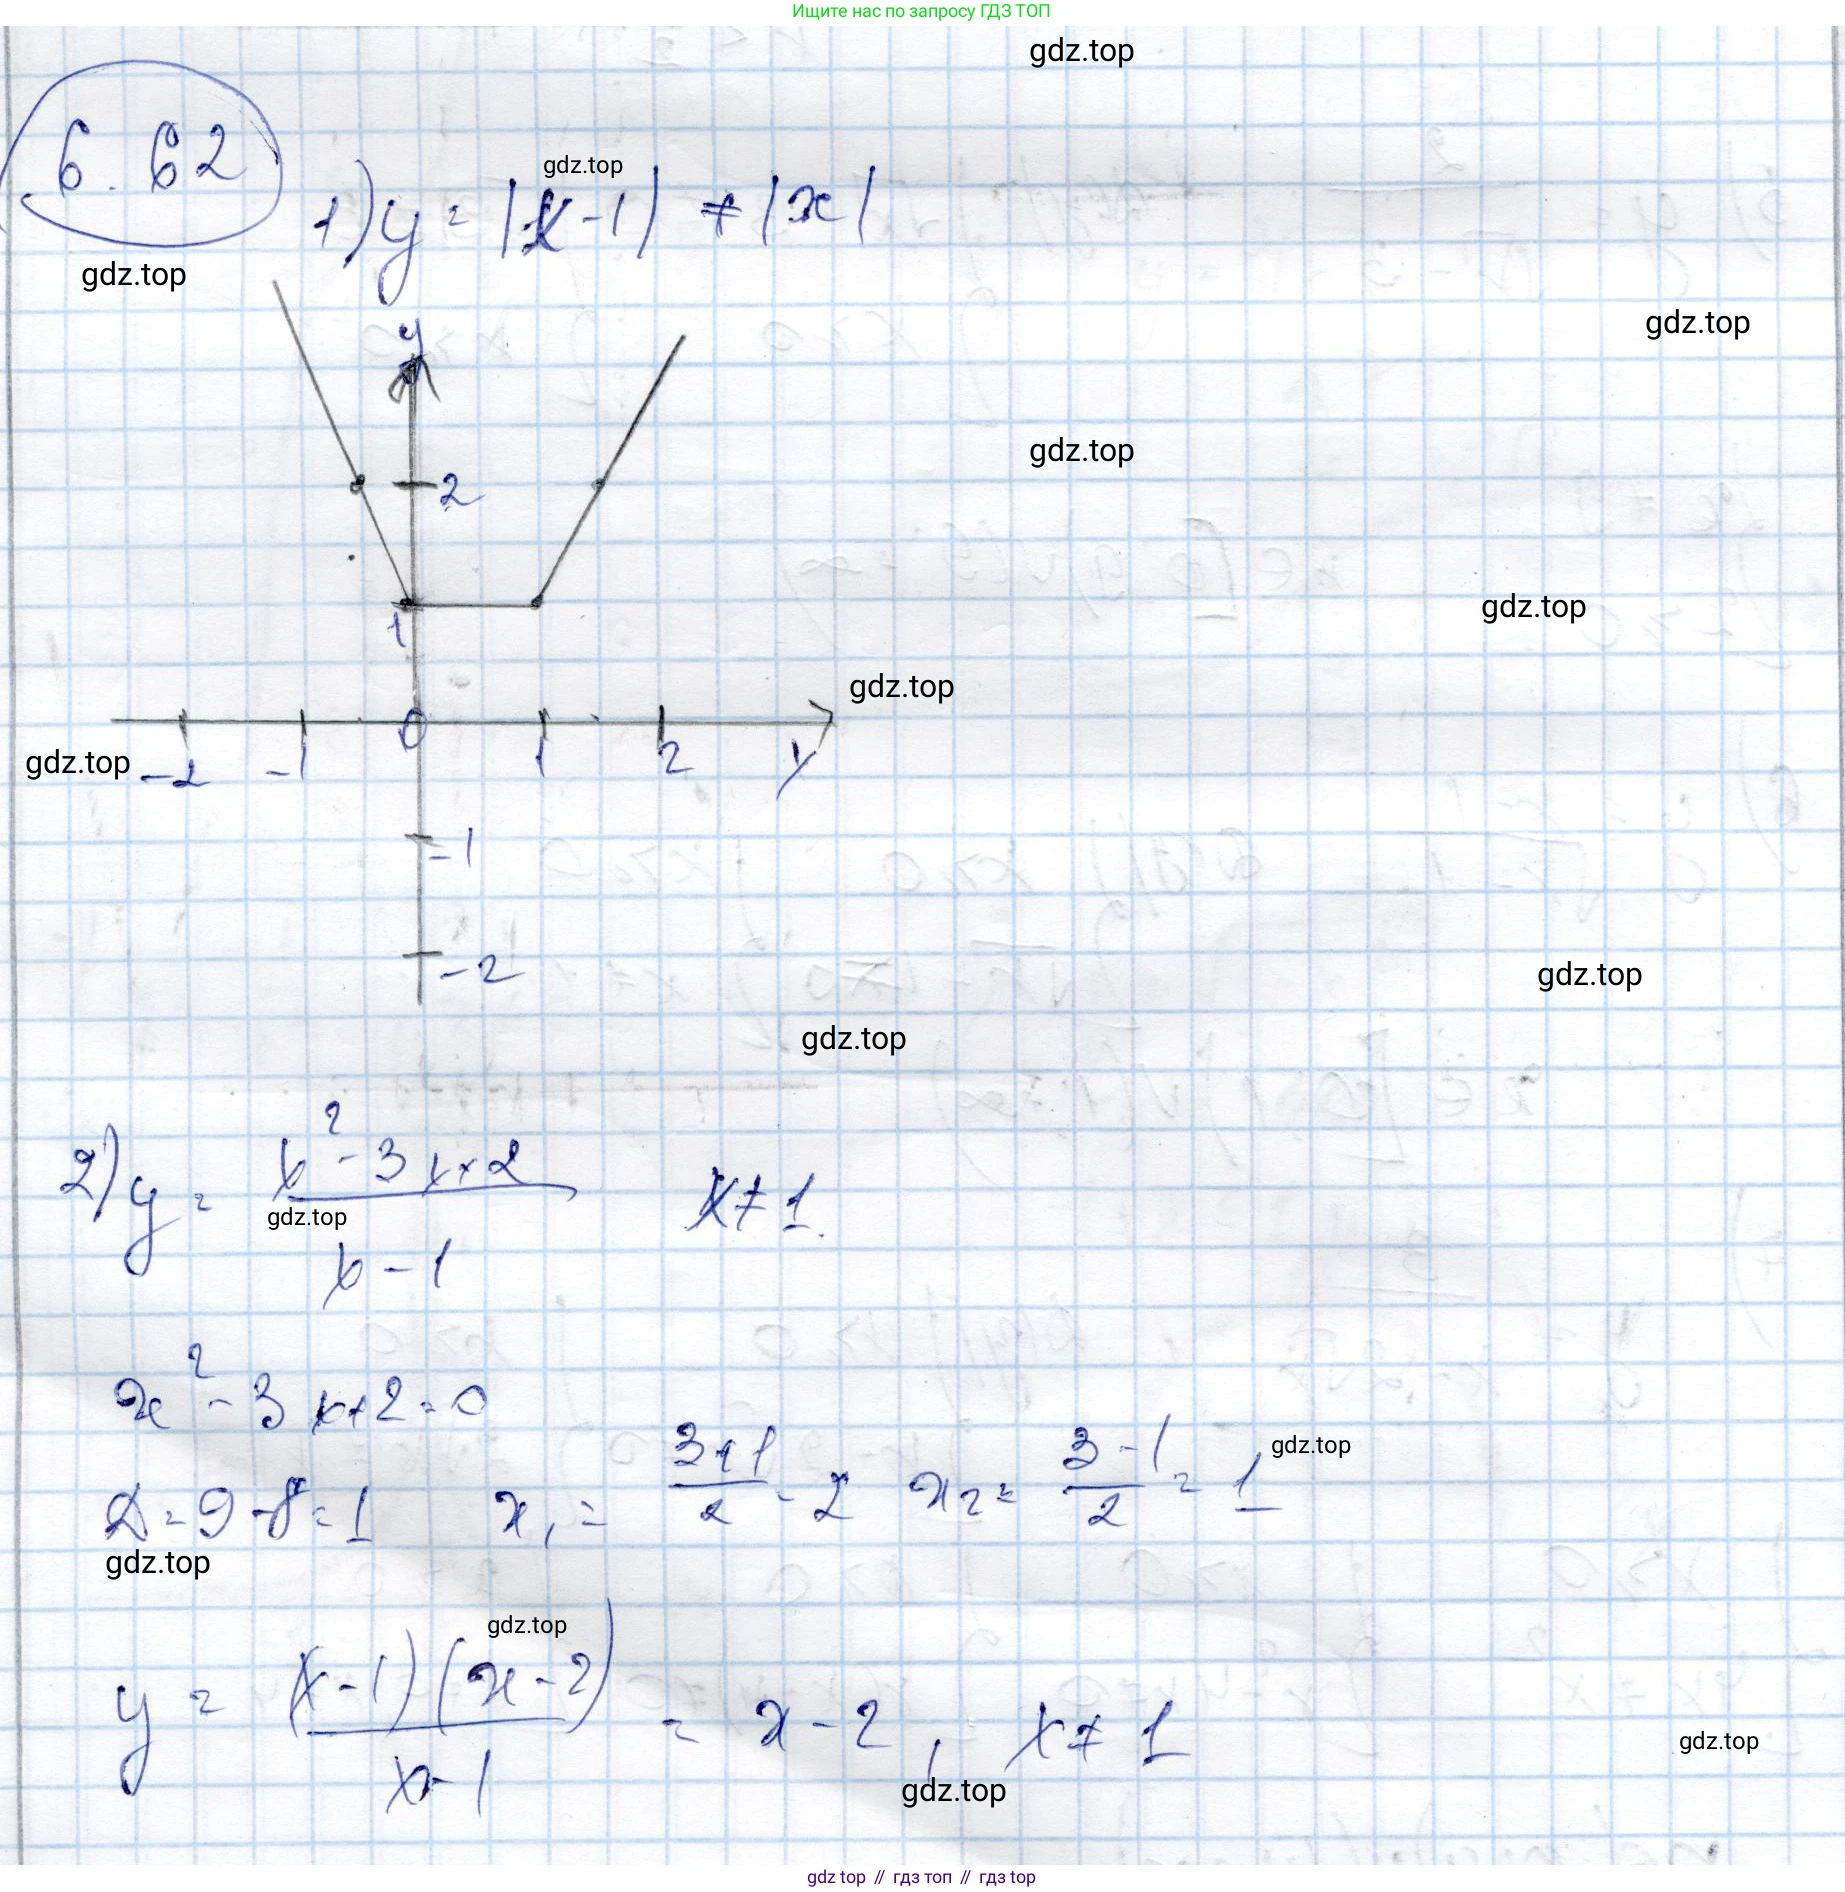 Ищите нас по запросу ГДЗ ТОП
gdz.top
6.62
gdz.top
1) y = |x-1| + |x|
gdz.top
gdz.top
y
gdz.top
2
gdz.top
1
gdz.top
0
gdz.top
-2 -1 1 2 x
-1
-2
gdz.top
gdz.top
2) y = x² - 3x + 2 x ≠ 1
gdz.top
x - 1
x² - 3x + 2 = 0
D = 9 - 8 = 1 x₁ = 3+1/2 = 2 x₂ = 3-1/2 = 1
gdz.top
gdz.top
gdz.top
y = (x-1)(x-2)/x-1 = x - 2, x ≠ 1
gdz.top
gdz.top
gdz top // гдз топ // гдз top